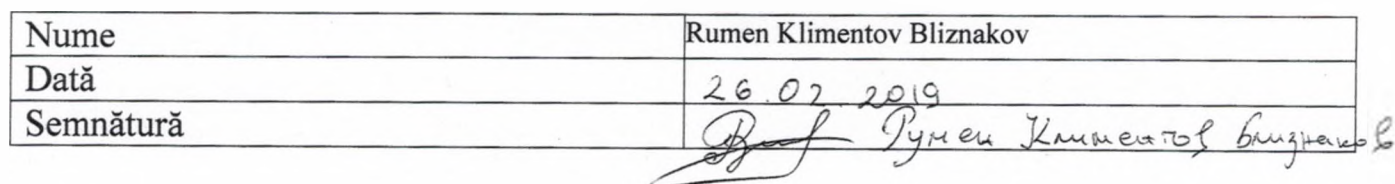 Nume Rumen Klimentov Bliznakov
Dată 26.02.2019
Semnătură Румен Климентов Близнаков